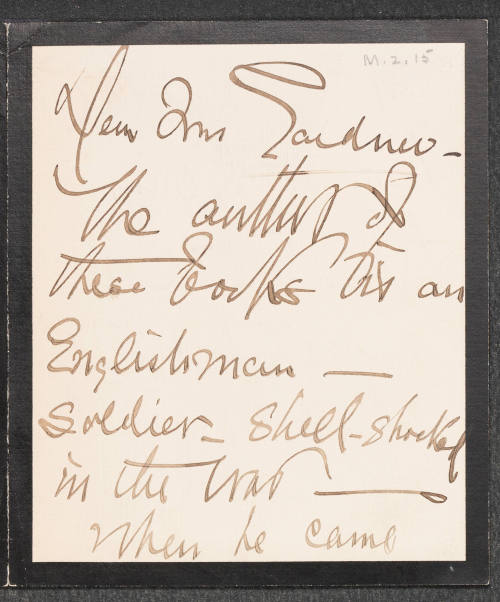 M.2.15
Dear Mrs Gardner -
The author of
these books is an
Englishman —
Soldier - Shell-shocked
in the War —
When he came